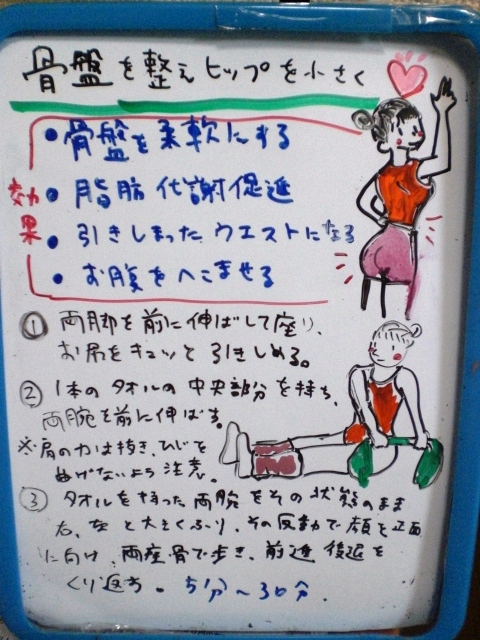 骨盤を整えヒップを小さく
効果
• 骨盤を柔軟にする
• 脂肪代謝促進
• 引きしまったウエストになる
• お腹をへこませる
① 両脚を前に伸ばして座り、
お尻をキュッと引きしめる。
② 1本のタオルの中央部分を持ち、
両腕を前に伸ばす。
※肩の力は抜き、ひじを
曲げないよう注意。
③ タオルを持った両腕をその状態のまま
右、左と大きくふり、その反動で顔を正面
に向け、両座骨で歩き、前進後退を
くり返す。5分〜30分.